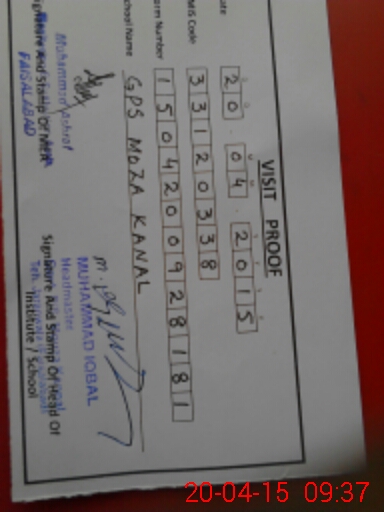 VISIT PROOF
Date 20.04.2015
EMIS Code 33120338
Form Number 1504200928181
School Name GPS MOZA KANAL
Muhammad Ashraf
Signature And Stamp Of MEA
FAISALABAD
MUHAMMAD IQBAL
Headmaster
Signature And Stamp Of Head Of
Institute / School
20-04-15 09:37